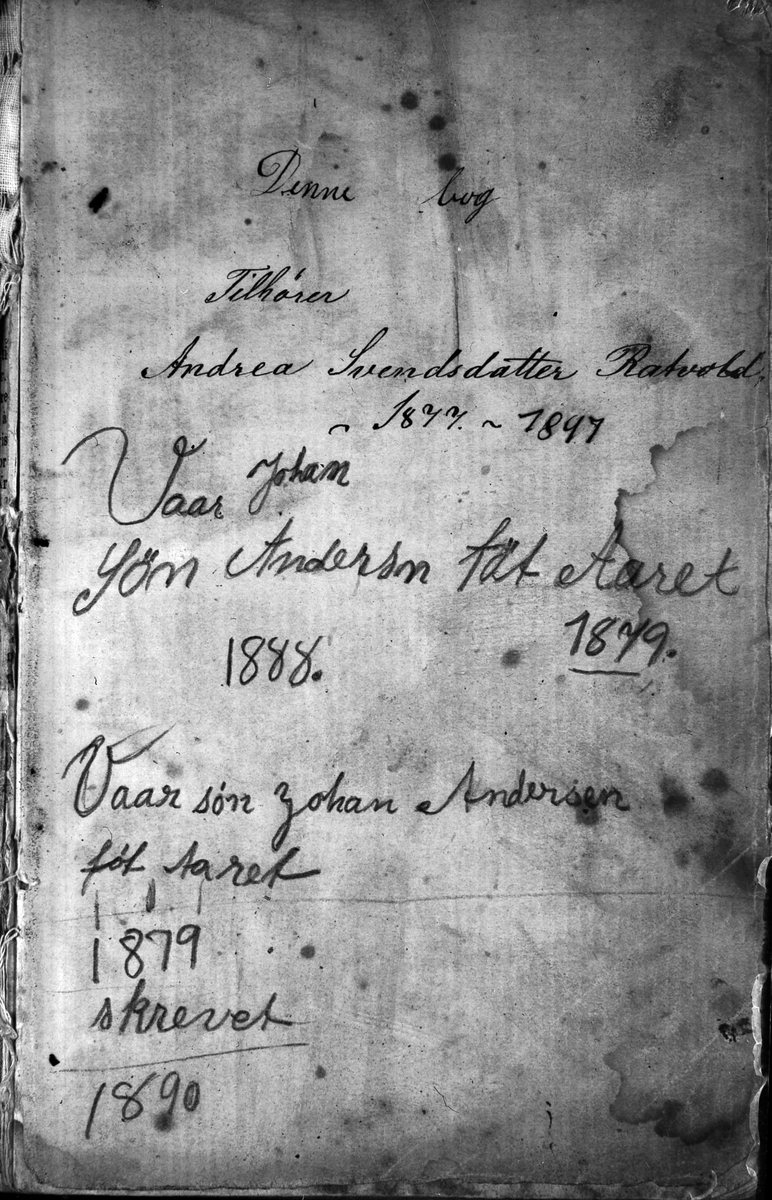 Denne bog
Tilhører
Andrea Svendsdatter Ratvold.
~ 1877. ~ 1897
Vaar Johan
Sön Andersn føt Aaret
1888. 1879.
Vaar søn Johan Andersen
føt Aaret
1879
skrevet
1890